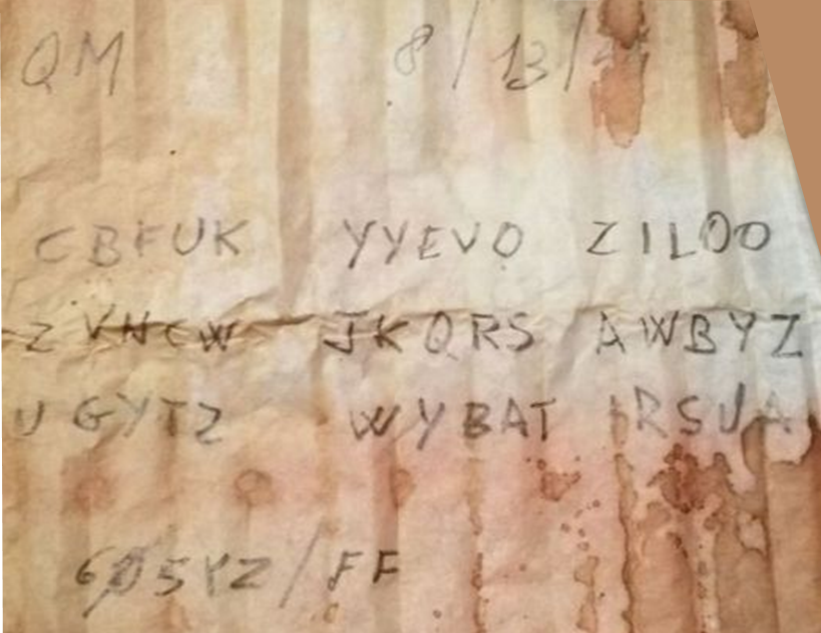 QM 8/13/
CBFUK YYEVO ZILOO
ZVNCW JKQRS AWBYZ
UGYTZ WYBAT IRSUA
6Ø5YZ/FF